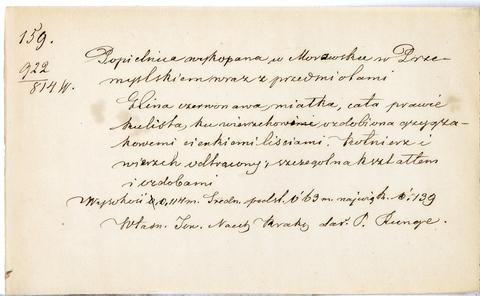 159.
922
814 W.
Popielnica wykopana w Morawsku w Prze-
myślskiem wraz z przedmiotami
Glina czerwonawa miałka, cała prawie
kulista, ku wierzchowi ozdobiona
kowemi cienkiemi liściami. Kołnierz i
wierzch odtrącony; szczególna kształtem
i ozdobami
Wysokość 0,114 m. Średn. podst. 0'63 m. najwięk. 0.139
Własn. Tow. Nauk. Krak. dar. P. Runge.